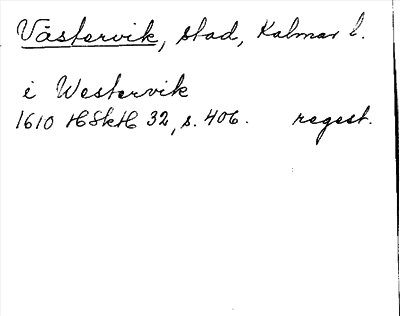 Västervik, stad, Kalmar l.
i Westervik
1610 HSkH 32, s. 406. regest.